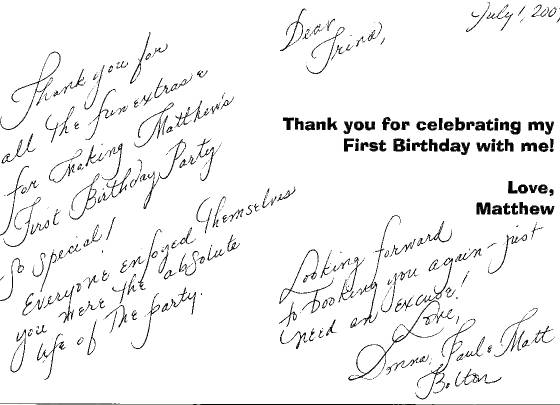 July 1, 200
Dear
Trina,
Thank you for
all the fun extras &
for making Matthew's
First Birthday Party
so special!
Everyone enjoyed themselves
you were the absolute
life of the party.
Thank you for celebrating my
First Birthday with me!
Love,
Matthew
Looking forward
to booking you again - just
need an excuse!
Love,
Donna, Paul & Matt
Bolton